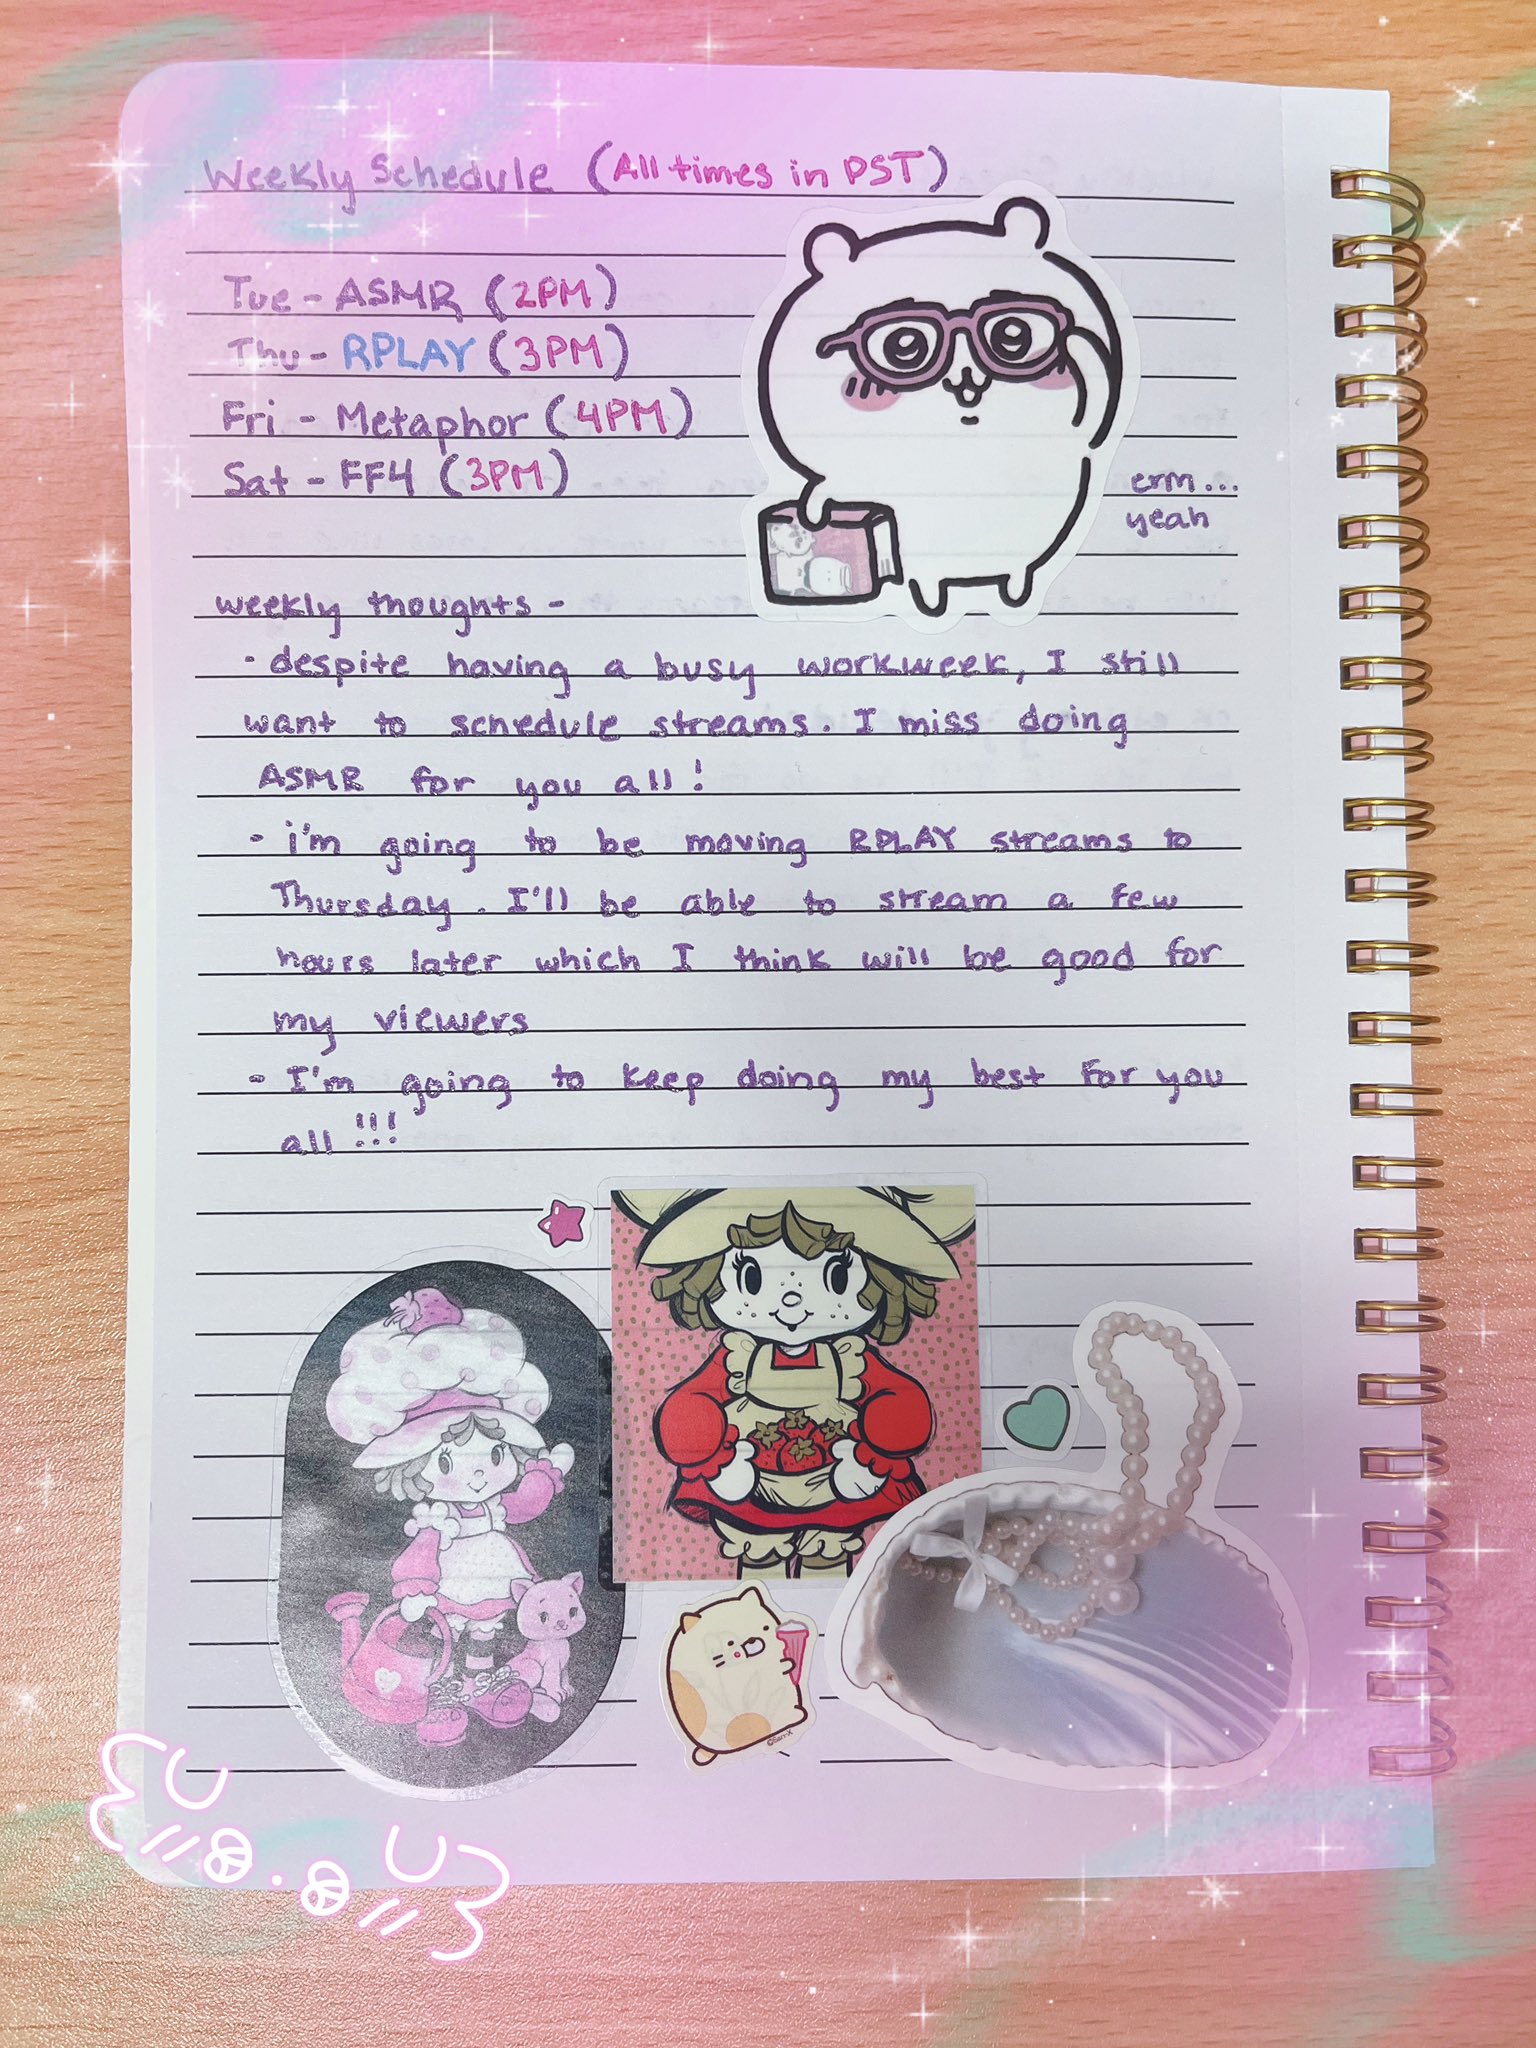 Weekly Schedule (All times in PST)
Tue - ASMR (2PM)
Thu - RPLAY (3PM)
Fri - Metaphor (4PM)
Sat - FF4 (3PM)
erm...
yeah
weekly thoughts -
- despite having a busy workweek, I still
want to schedule streams. I miss doing
ASMR for you all!
- i'm going to be moving RPLAY streams to
Thursday. I'll be able to stream a few
hours later which I think will be good for
my viewers
- I'm going to keep doing my best for you
all!!!
©San-X